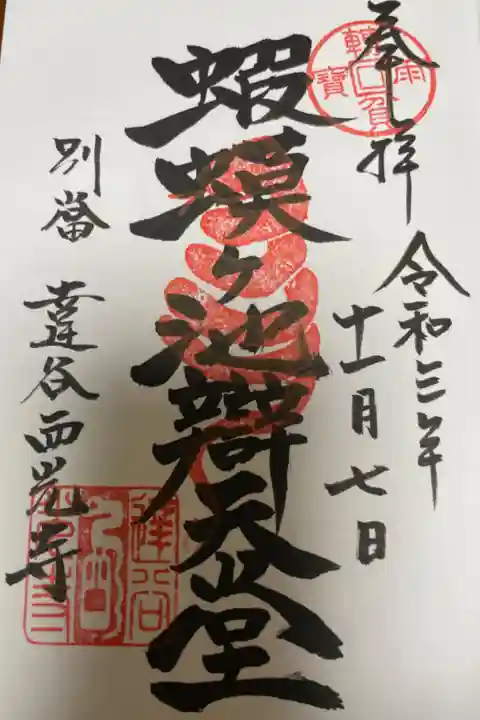 奉拝
令和三年
十一月七日
蝦蟆ヶ池辯天堂
別當
達谷西光寺